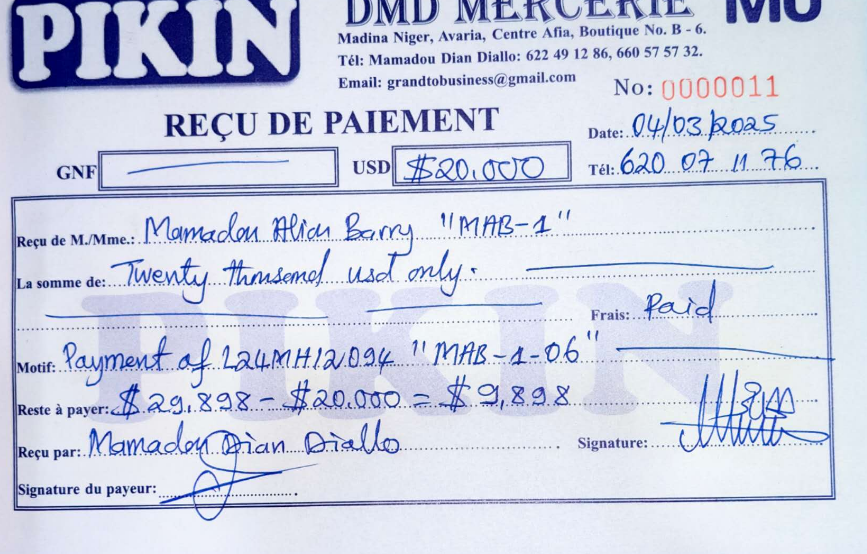 PIKIN
DMD MERCERIE
MO
Madina Niger, Avaria, Centre Afia, Boutique No. B - 6.
Tél: Mamadou Dian Diallo: 622 49 12 86, 660 57 57 32.
Email: grandtobusiness@gmail.com
No: 0000011
REÇU DE PAIEMENT
Date: 04/03/2025
GNF
USD $20.000
Tél: 620 07 11 76
Reçu de M./Mme.: Mamadou Aliou Barry "MAB-1"
La somme de: Twenty thousand usd only.
PIKIN
Frais: Paid
Motif: Payment of L24MH12094 "MAB-1-06"
Reste à payer: $29,898 - $20.000 = $9,898
Reçu par: Mamadou Dian Diallo
Signature:
Signature du payeur: